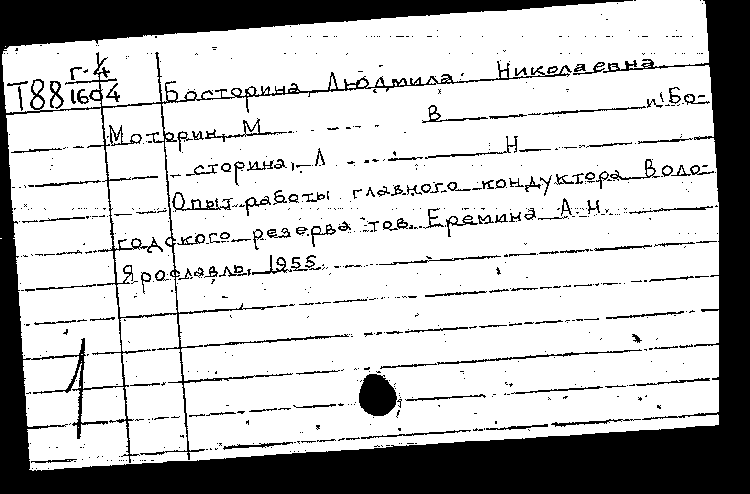 Г-4
Т88 1604 Босторина, Людмила Николаевна
Моторин, М В и Бо-
сторина, Л Н
Опыт работы главного кондуктора Воло-
годского резерва тов. Еремина А.Н.
Ярославль, 1955.
1